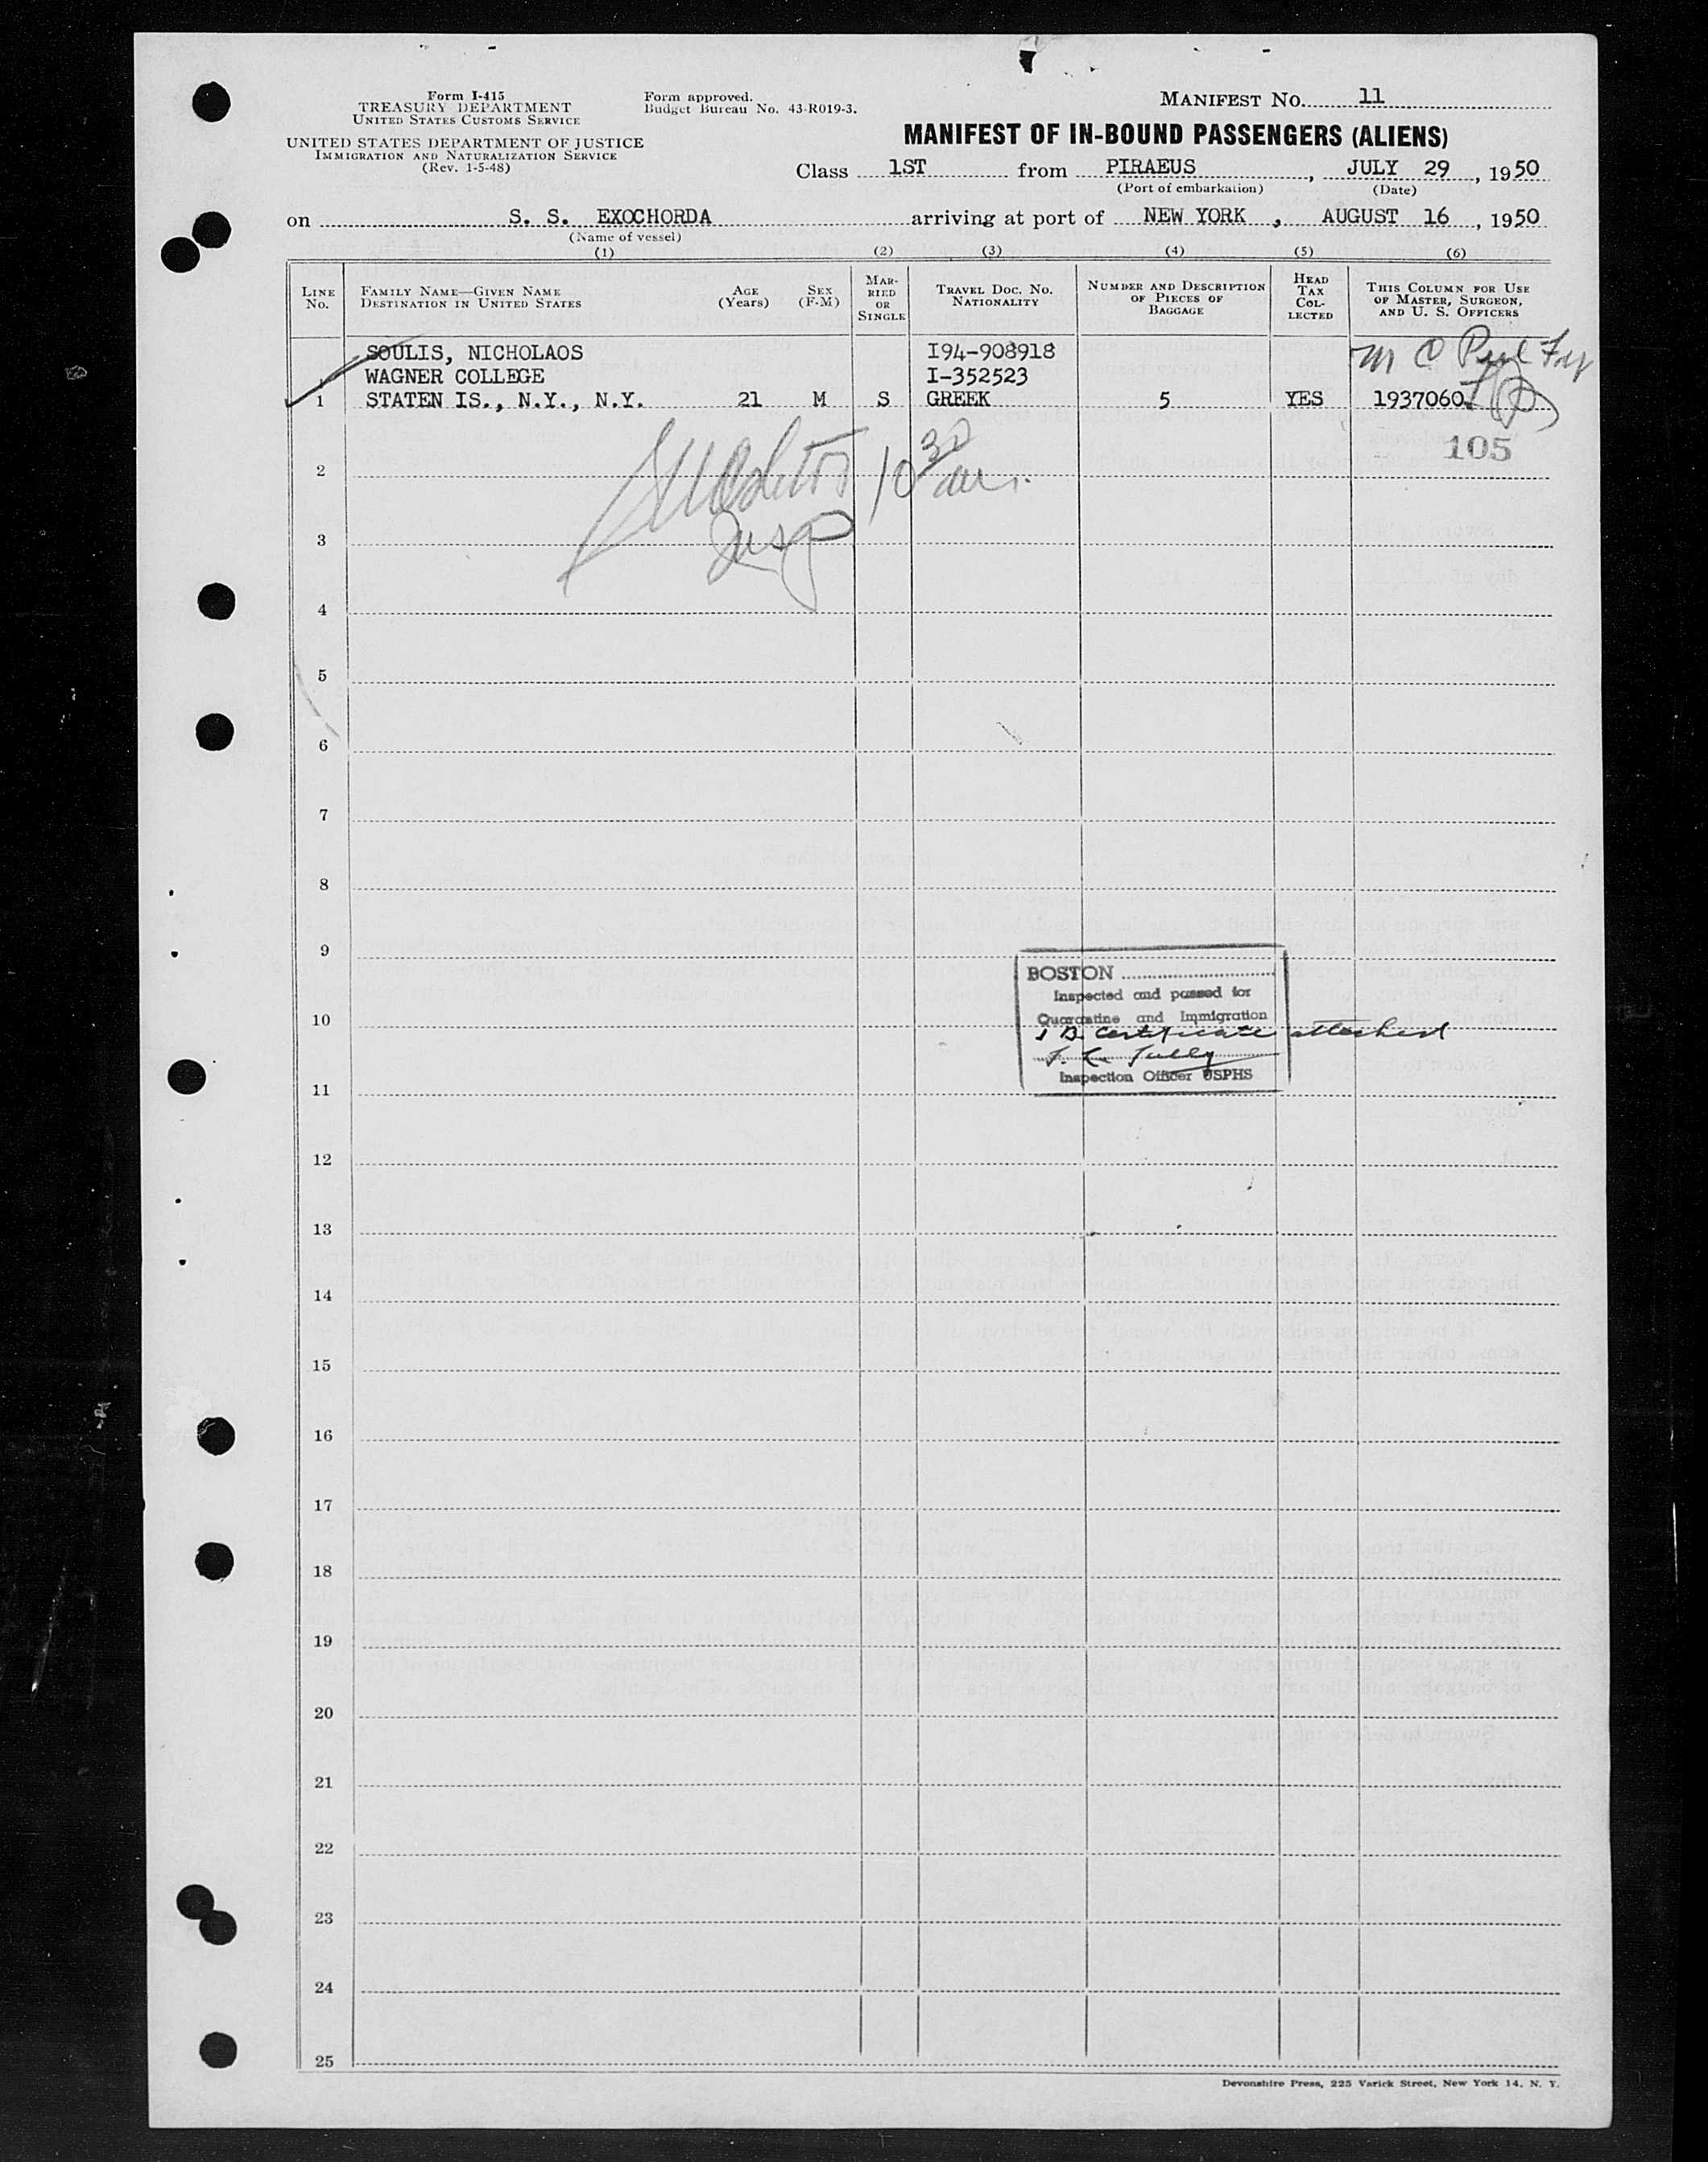 Form I-415
TREASURY DEPARTMENT
UNITED STATES CUSTOMS SERVICE
UNITED STATES DEPARTMENT OF JUSTICE
IMMIGRATION AND NATURALIZATION SERVICE
(Rev. 1-5-48)
Form approved.
Budget Bureau No. 43-R019-3.
MANIFEST NO. 11
MANIFEST OF IN-BOUND PASSENGERS (ALIENS)
Class 1ST from PIRAEUS, JULY 29, 1950
(Port of embarkation) (Date)
on S. S. EXOCHORDA arriving at port of NEW YORK, AUGUST 16, 1950
(Name of vessel)
(1) (2) (3) (4) (5) (6)
LINE No.
FAMILY NAME—GIVEN NAME
DESTINATION IN UNITED STATES
AGE (Years)
SEX (F-M)
MARRIED OR SINGLE
TRAVEL DOC. NO.
NATIONALITY
NUMBER AND DESCRIPTION OF PIECES OF BAGGAGE
HEAD TAX COLLECTED
THIS COLUMN FOR USE OF MASTER, SURGEON, AND U. S. OFFICERS
SOULIS, NICHOLAOS I94-908918
WAGNER COLLEGE I-352523
1 STATEN IS., N.Y., N.Y. 21 M S GREEK 5 YES 1937060
105
10 30 am.
2
Insp
3
4
5
6
7
8
9
BOSTON
Inspected and passed for
Quarantine and Immigration
10
Certificate attached
Inspection Officer USPHS
11
12
13
14
15
16
17
18
19
20
21
22
23
24
25
Devonshire Press, 225 Varick Street, New York 14, N. Y.